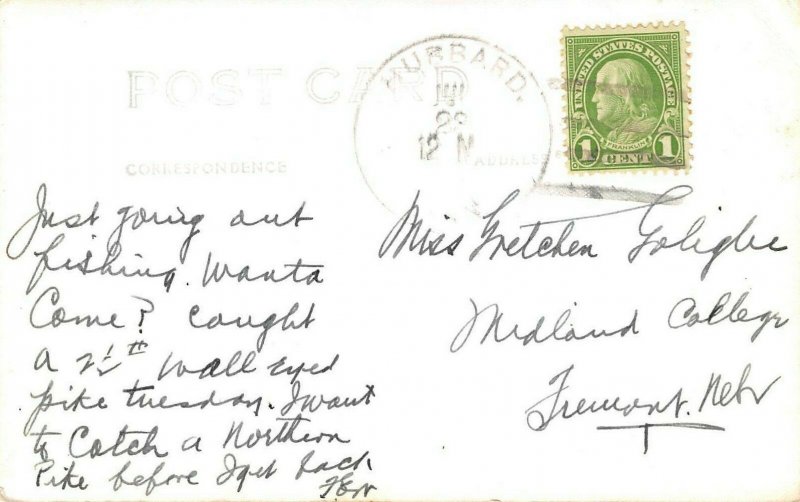 POST CARD
CORRESPONDENCE
ADDRESS
HUBBARD.
29
12 M
UNITED STATES POSTAGE
FRANKLIN
1 CENT 1
Just going out
fishing. Wanta
Come? caught
a 2½ # wall eyed
pike tuesday. I want
to Catch a Northern
Pike before I get back
Miss Gretchen
Midland College
Fremont. Nebr